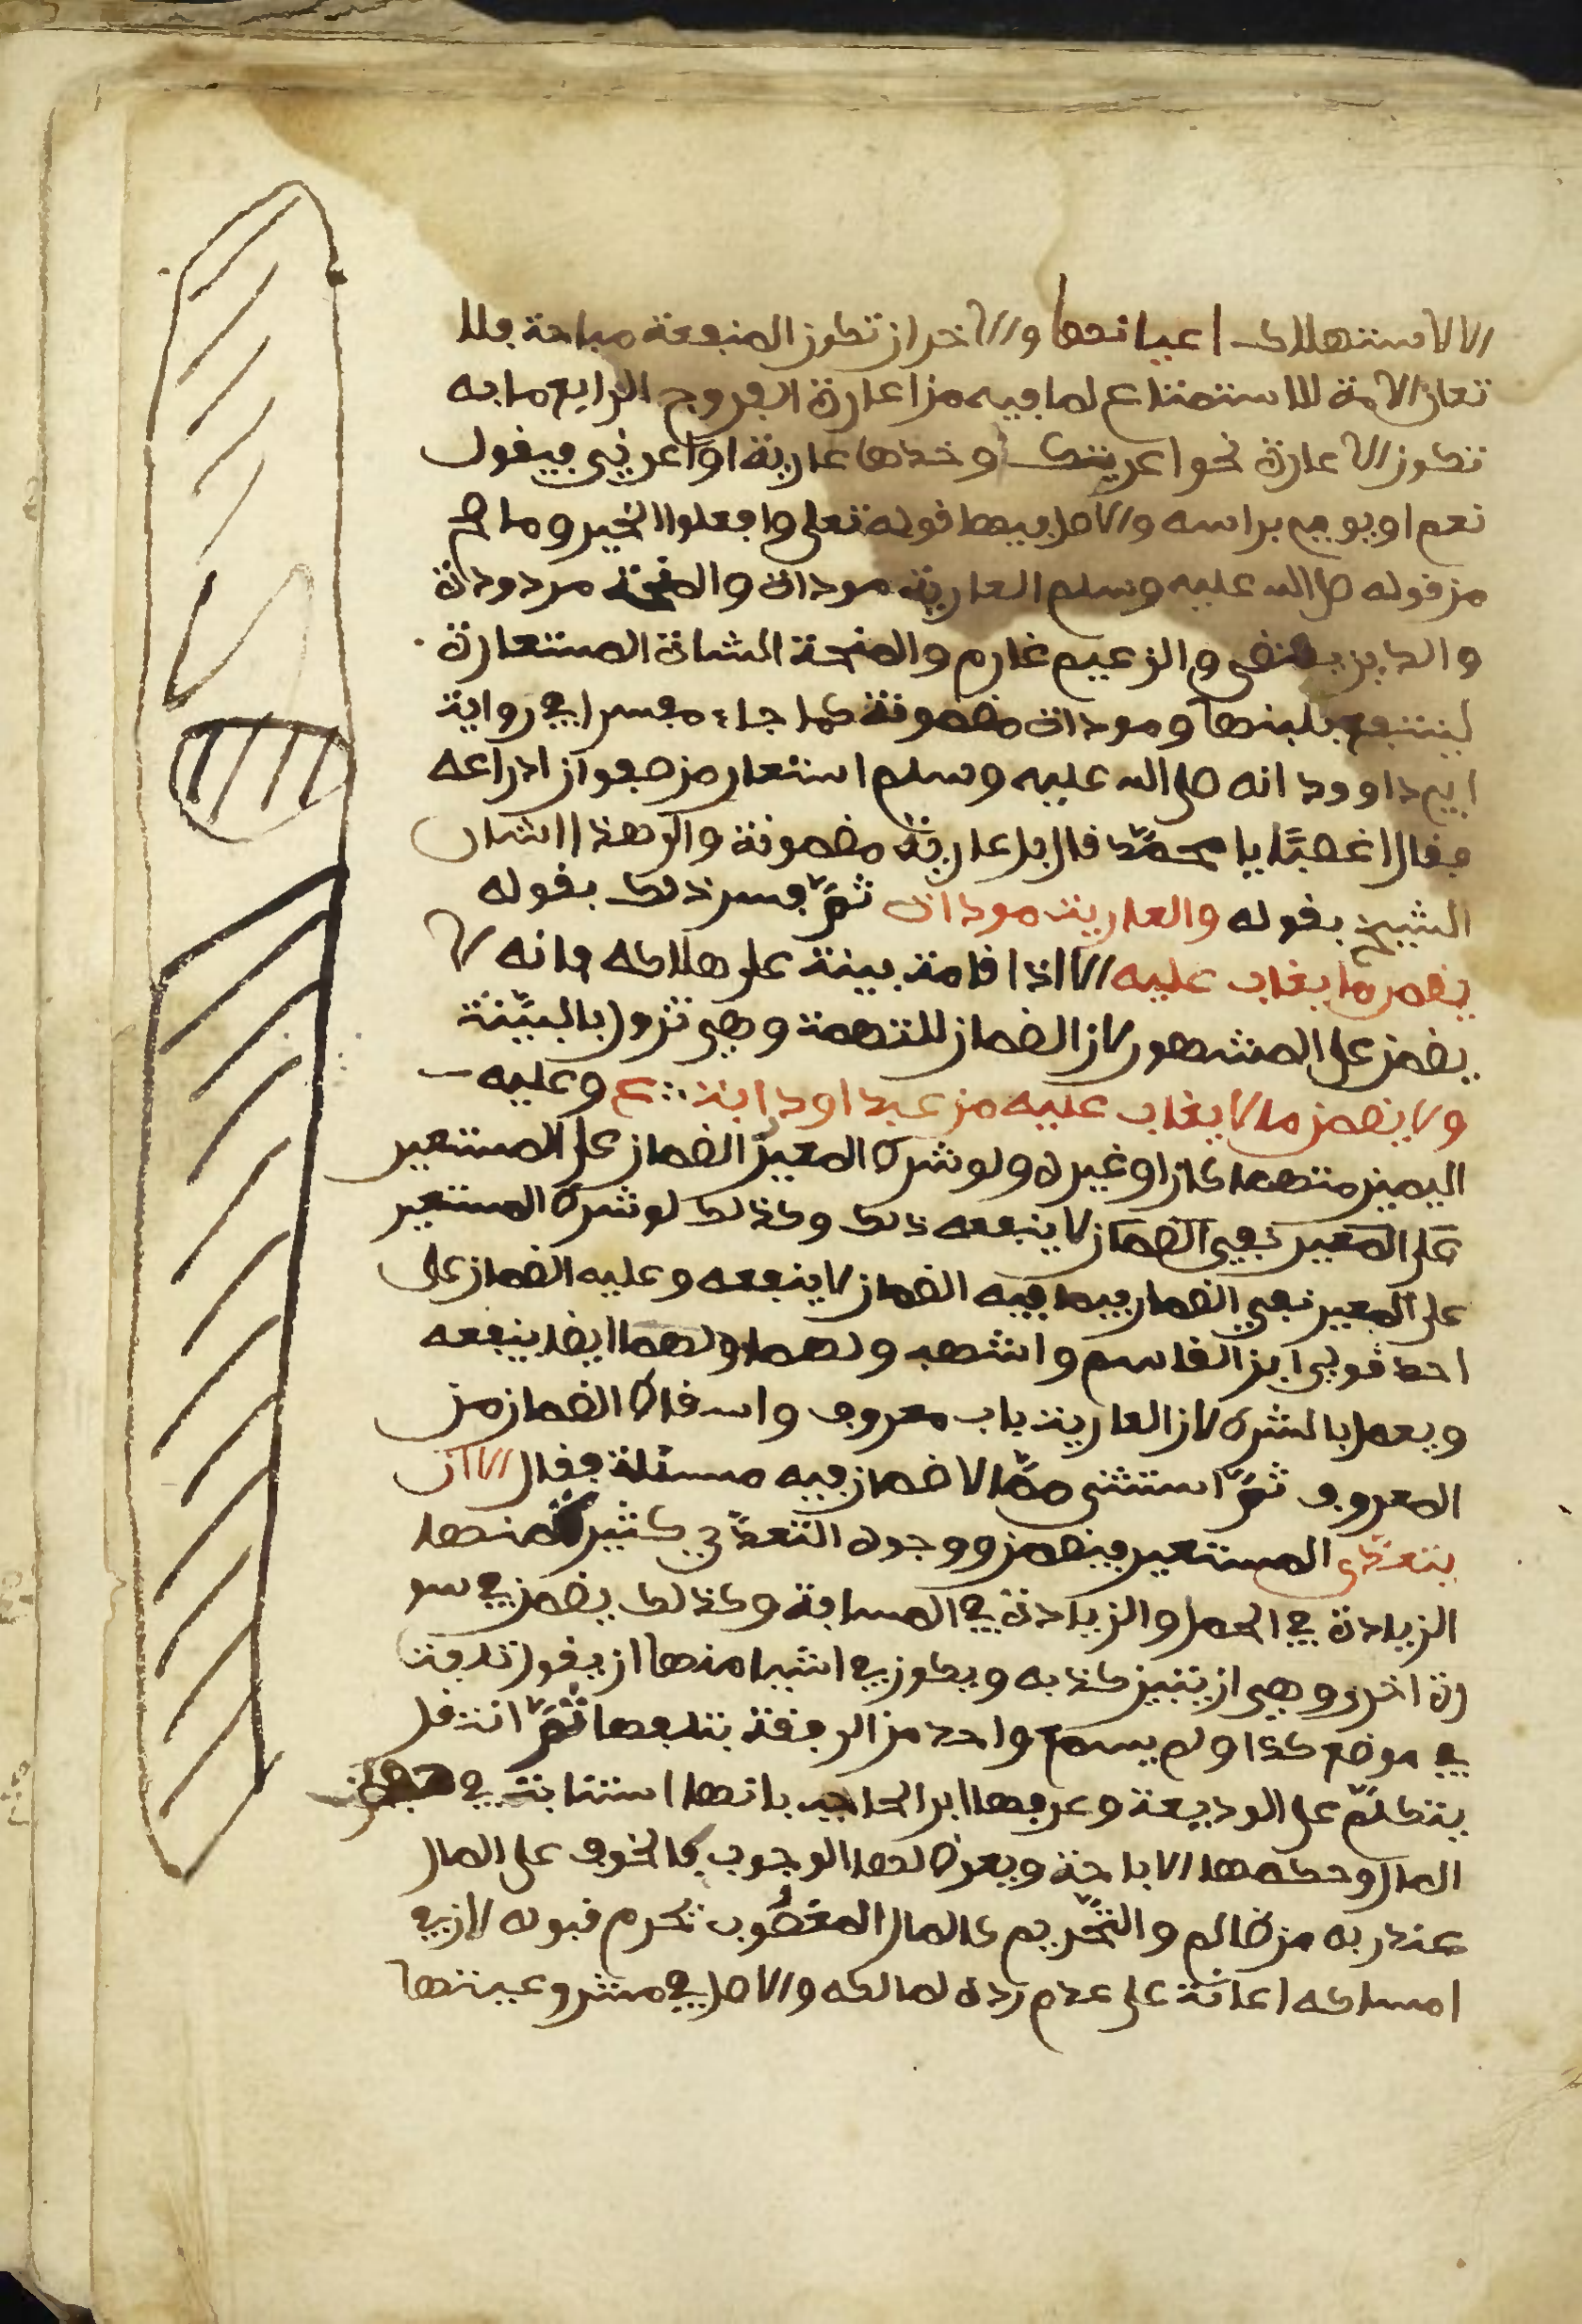 الا لاستهلاك اعيانها والاخر ان تكون المنفعة مباحة فلا
تعار الامة للاستمتاع لما فيه من اعارة الفروج الرابع ما به
تكون الاعارة نحو اعرتك وخذها عارية او اعرني فيقول
نعم او يومي براسه والاصل فيها قوله تعلى وافعلوا الخير وما صح
من قوله صلى الله عليه وسلم العارية موداة والمنحة مردودة
والدين يقضى والزعيم غارم والمنحة الشاة المستعارة
لينتفع بلبنها وموداة مضمونة كما جاء مفسرا في رواية
ابي داوود انه صلى الله عليه وسلم استعار من صفوان ادراعه
فقال اغصبًا يا محمّد قال بل عارية مضمونة والى هذا اشار
الشيخ بقوله والعارية موداة ثمّ فسر ذلك بقوله
يضمن ما يغاب عليه الا اذا قامت بينة على هلاكه فانه لا
يضمن على المشهور لان الضمان للتهمة وهي تزول بالبيّنة
ولا يضمن ما لا يغاب عليه من عبد او دابة ع وعليه
اليمين متهما كان او غيره ولو شرط المعير الضمان على المستعير
على المعير نفي الضمان لا ينفعه ذلك وكذلك لو شرط المستعير
على المعير نفي الضمان فيما فيه الضمان لا ينفعه وعليه الضمان على
احد قولي ابن القاسم واشهب ولهما ولهما ايضا ينفعه
ويعمل بالشرط لان العارية باب معروف واسقاط الضمان من
المعروف ثمّ استثنى ممّا لا ضمان فيه مسئلة فقال الا ان
يتعدّى المستعير فيضمن ووجوه التعدّي كثيرة منها
الزيادة في الحمل والزيادة في المسافة وكذلك يضمن في سو
رة اخرى وهي ان يتبين كذبه ويكون في اشيا منها ان يقول تلفت
في موضع كذا ولم يسمع واحد من الرفقة بتلفها ثمّ انتقل
يتكلّم على الوديعة وعرفها ابن الحاجب بانها استنابة في حفظ
المال وحكمها الاباحة ويعرض لها الوجوب كالخوف على المال
عند ربه من ظالم والتّحريم كالمال المغصُوب تحرم قبوله لان في
امساكه اعانة على عدم رده لمالكه والاصل في مشروعيتها